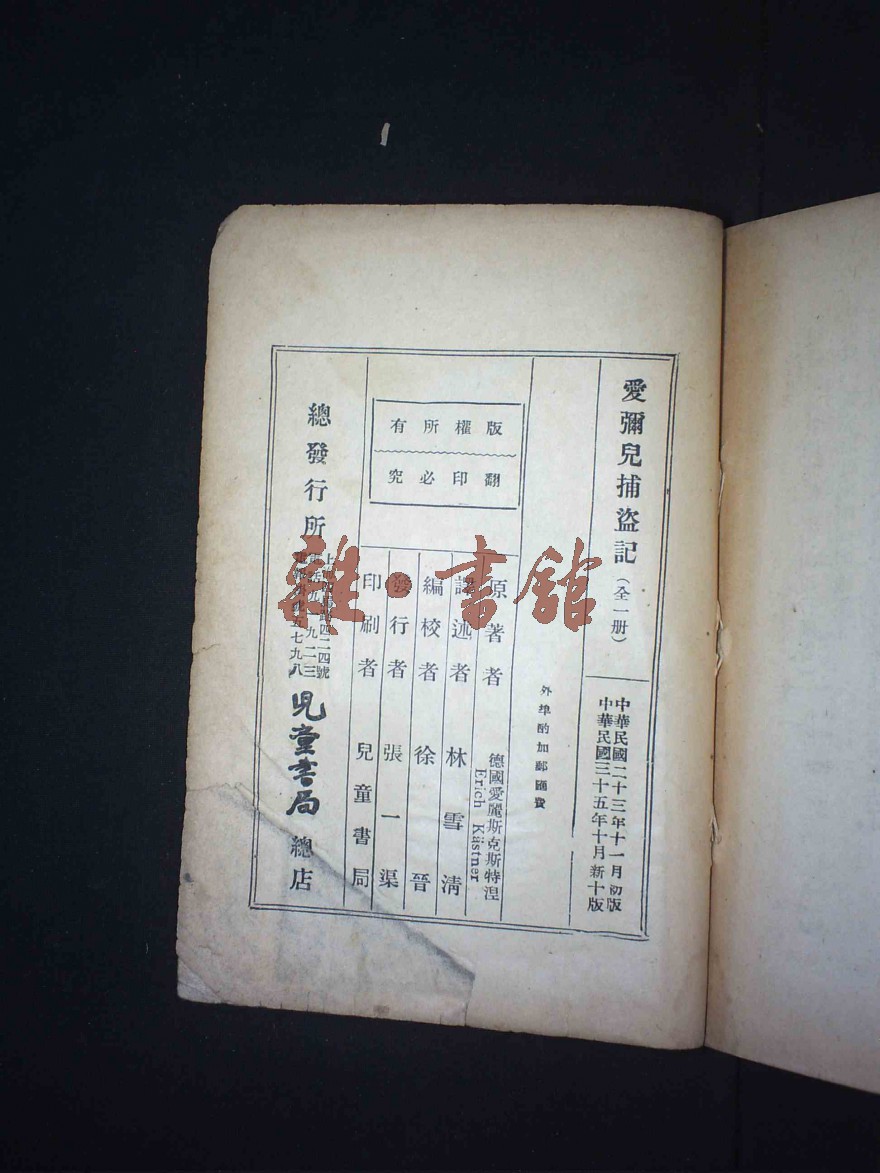 愛彌兒捕盜記（全一册）
中華民國二十三年十一月初版
中華民國三十五年十月新十版
外埠酌加郵匯費
版權所有
翻印必究
原著者 德國愛麗斯克斯特涅
Erich Kästner
譯述者 林雪清
編校者 徐晉
發行者 張一渠
印刷者 兒童書局
總發行所
兒童書局總店
雜·書館